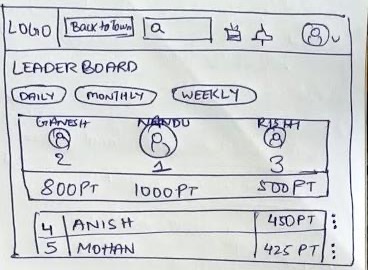 LOGO Back to Town a
LEADER BOARD
DAILY MONTHLY WEEKLY
GANESH NANDU RISHI
2 1 3
800PT 1000PT 500PT
4 ANISH 450PT
5 MOHAN 425 PT